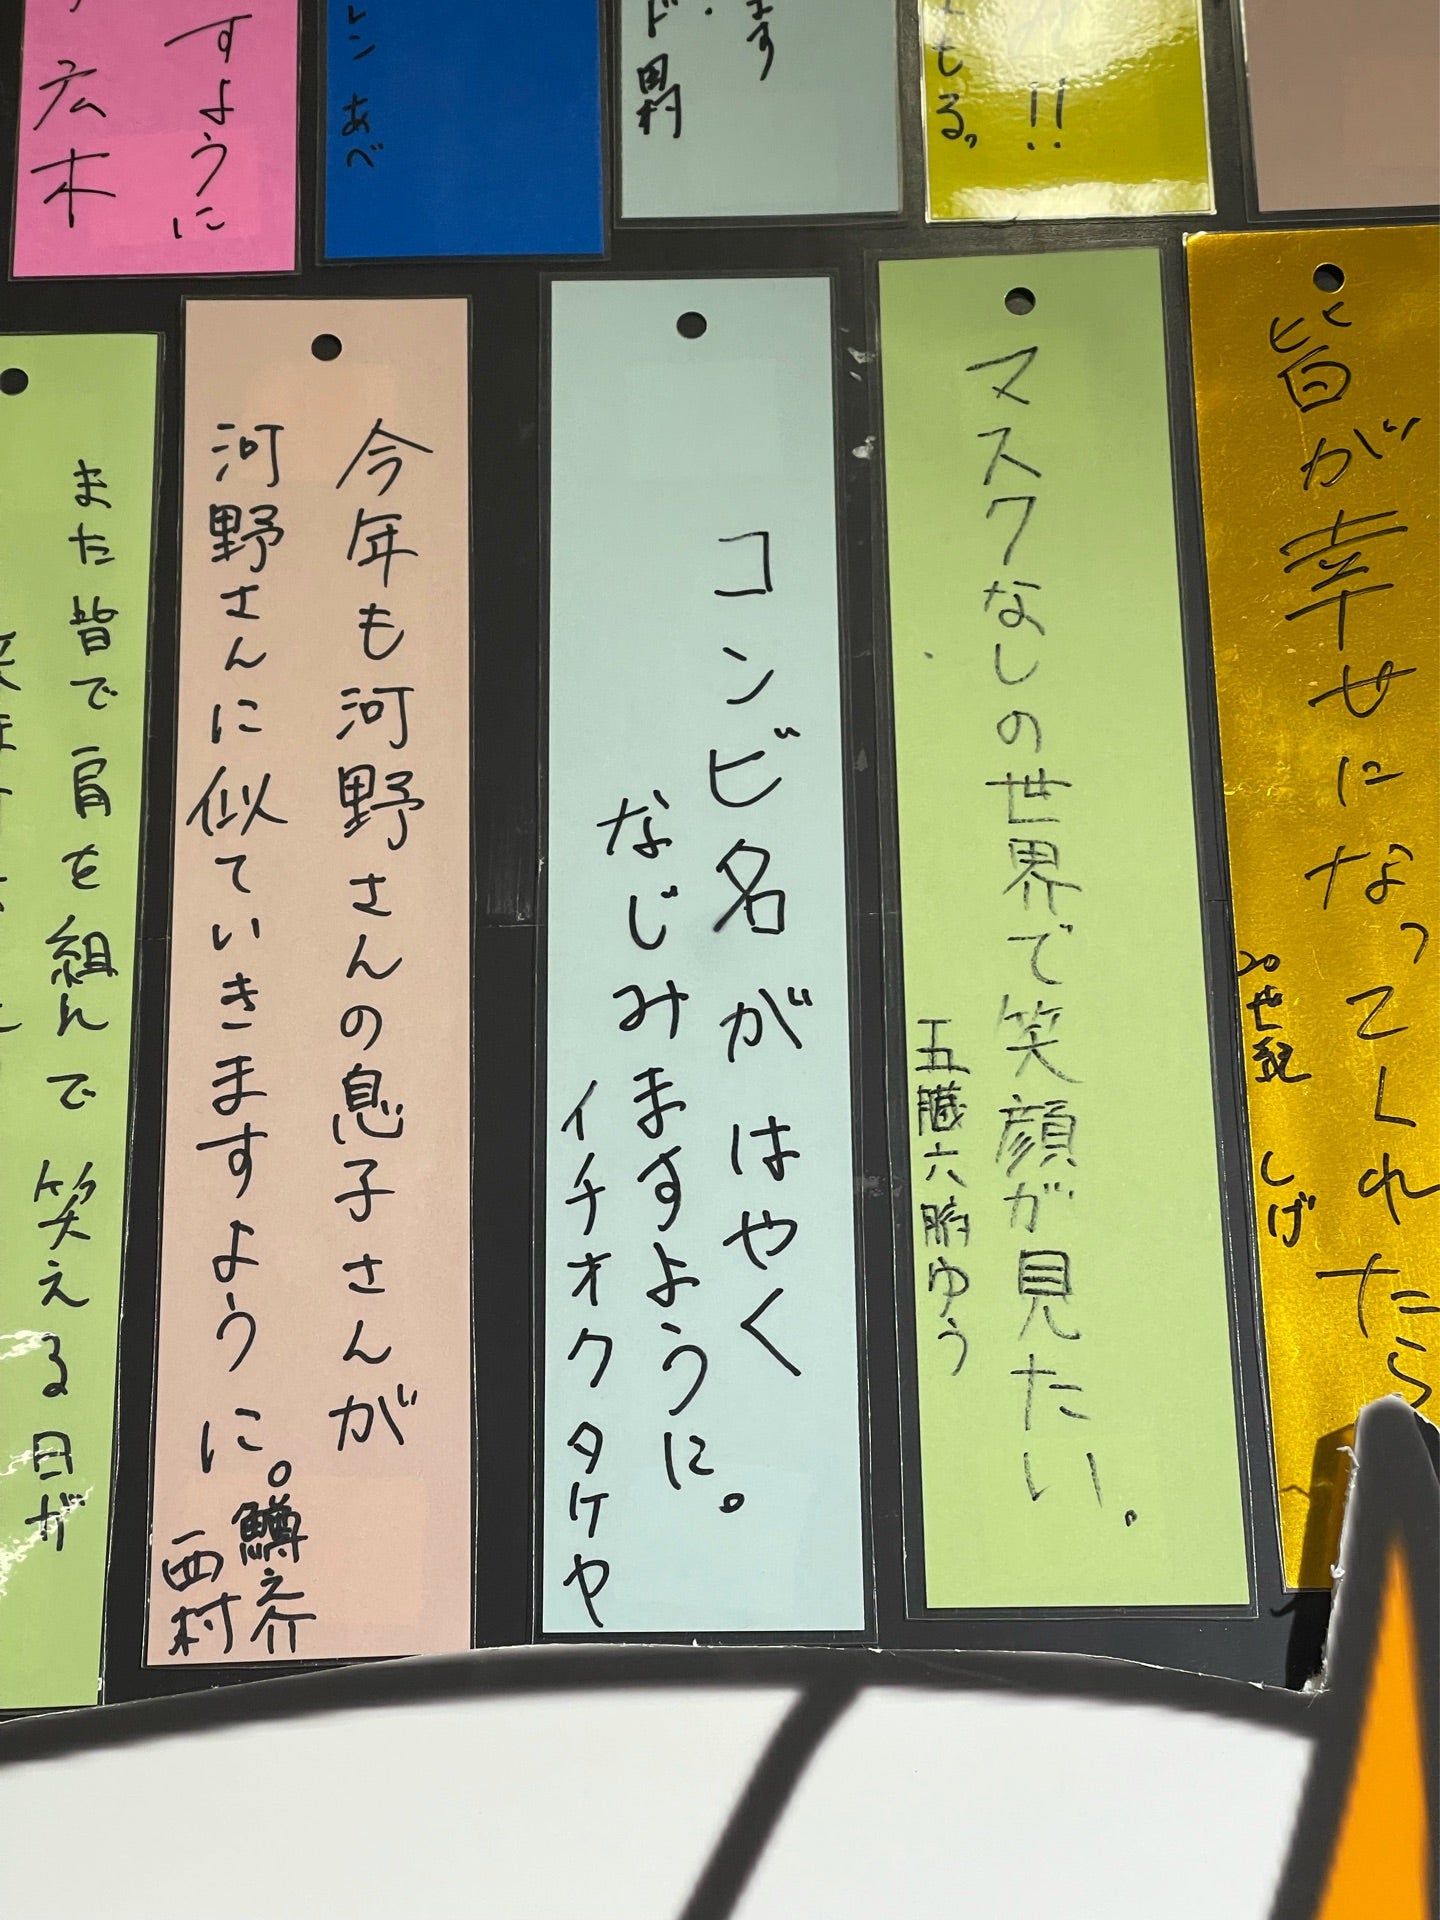 すように
広木
レン あべ
ます
ド田村
もる。
!!
皆が幸せになってくれたら
20世紀 しげ
マスクなしの世界で笑顔が見たい。
五臓六腑ゆう
コンビ名がはやく
なじみますように。
イチオクタケヤ
今年も河野さんの息子さんが
河野さんに似ていきますように。
鱒之介
西村
また皆で肩を組んで笑える日が